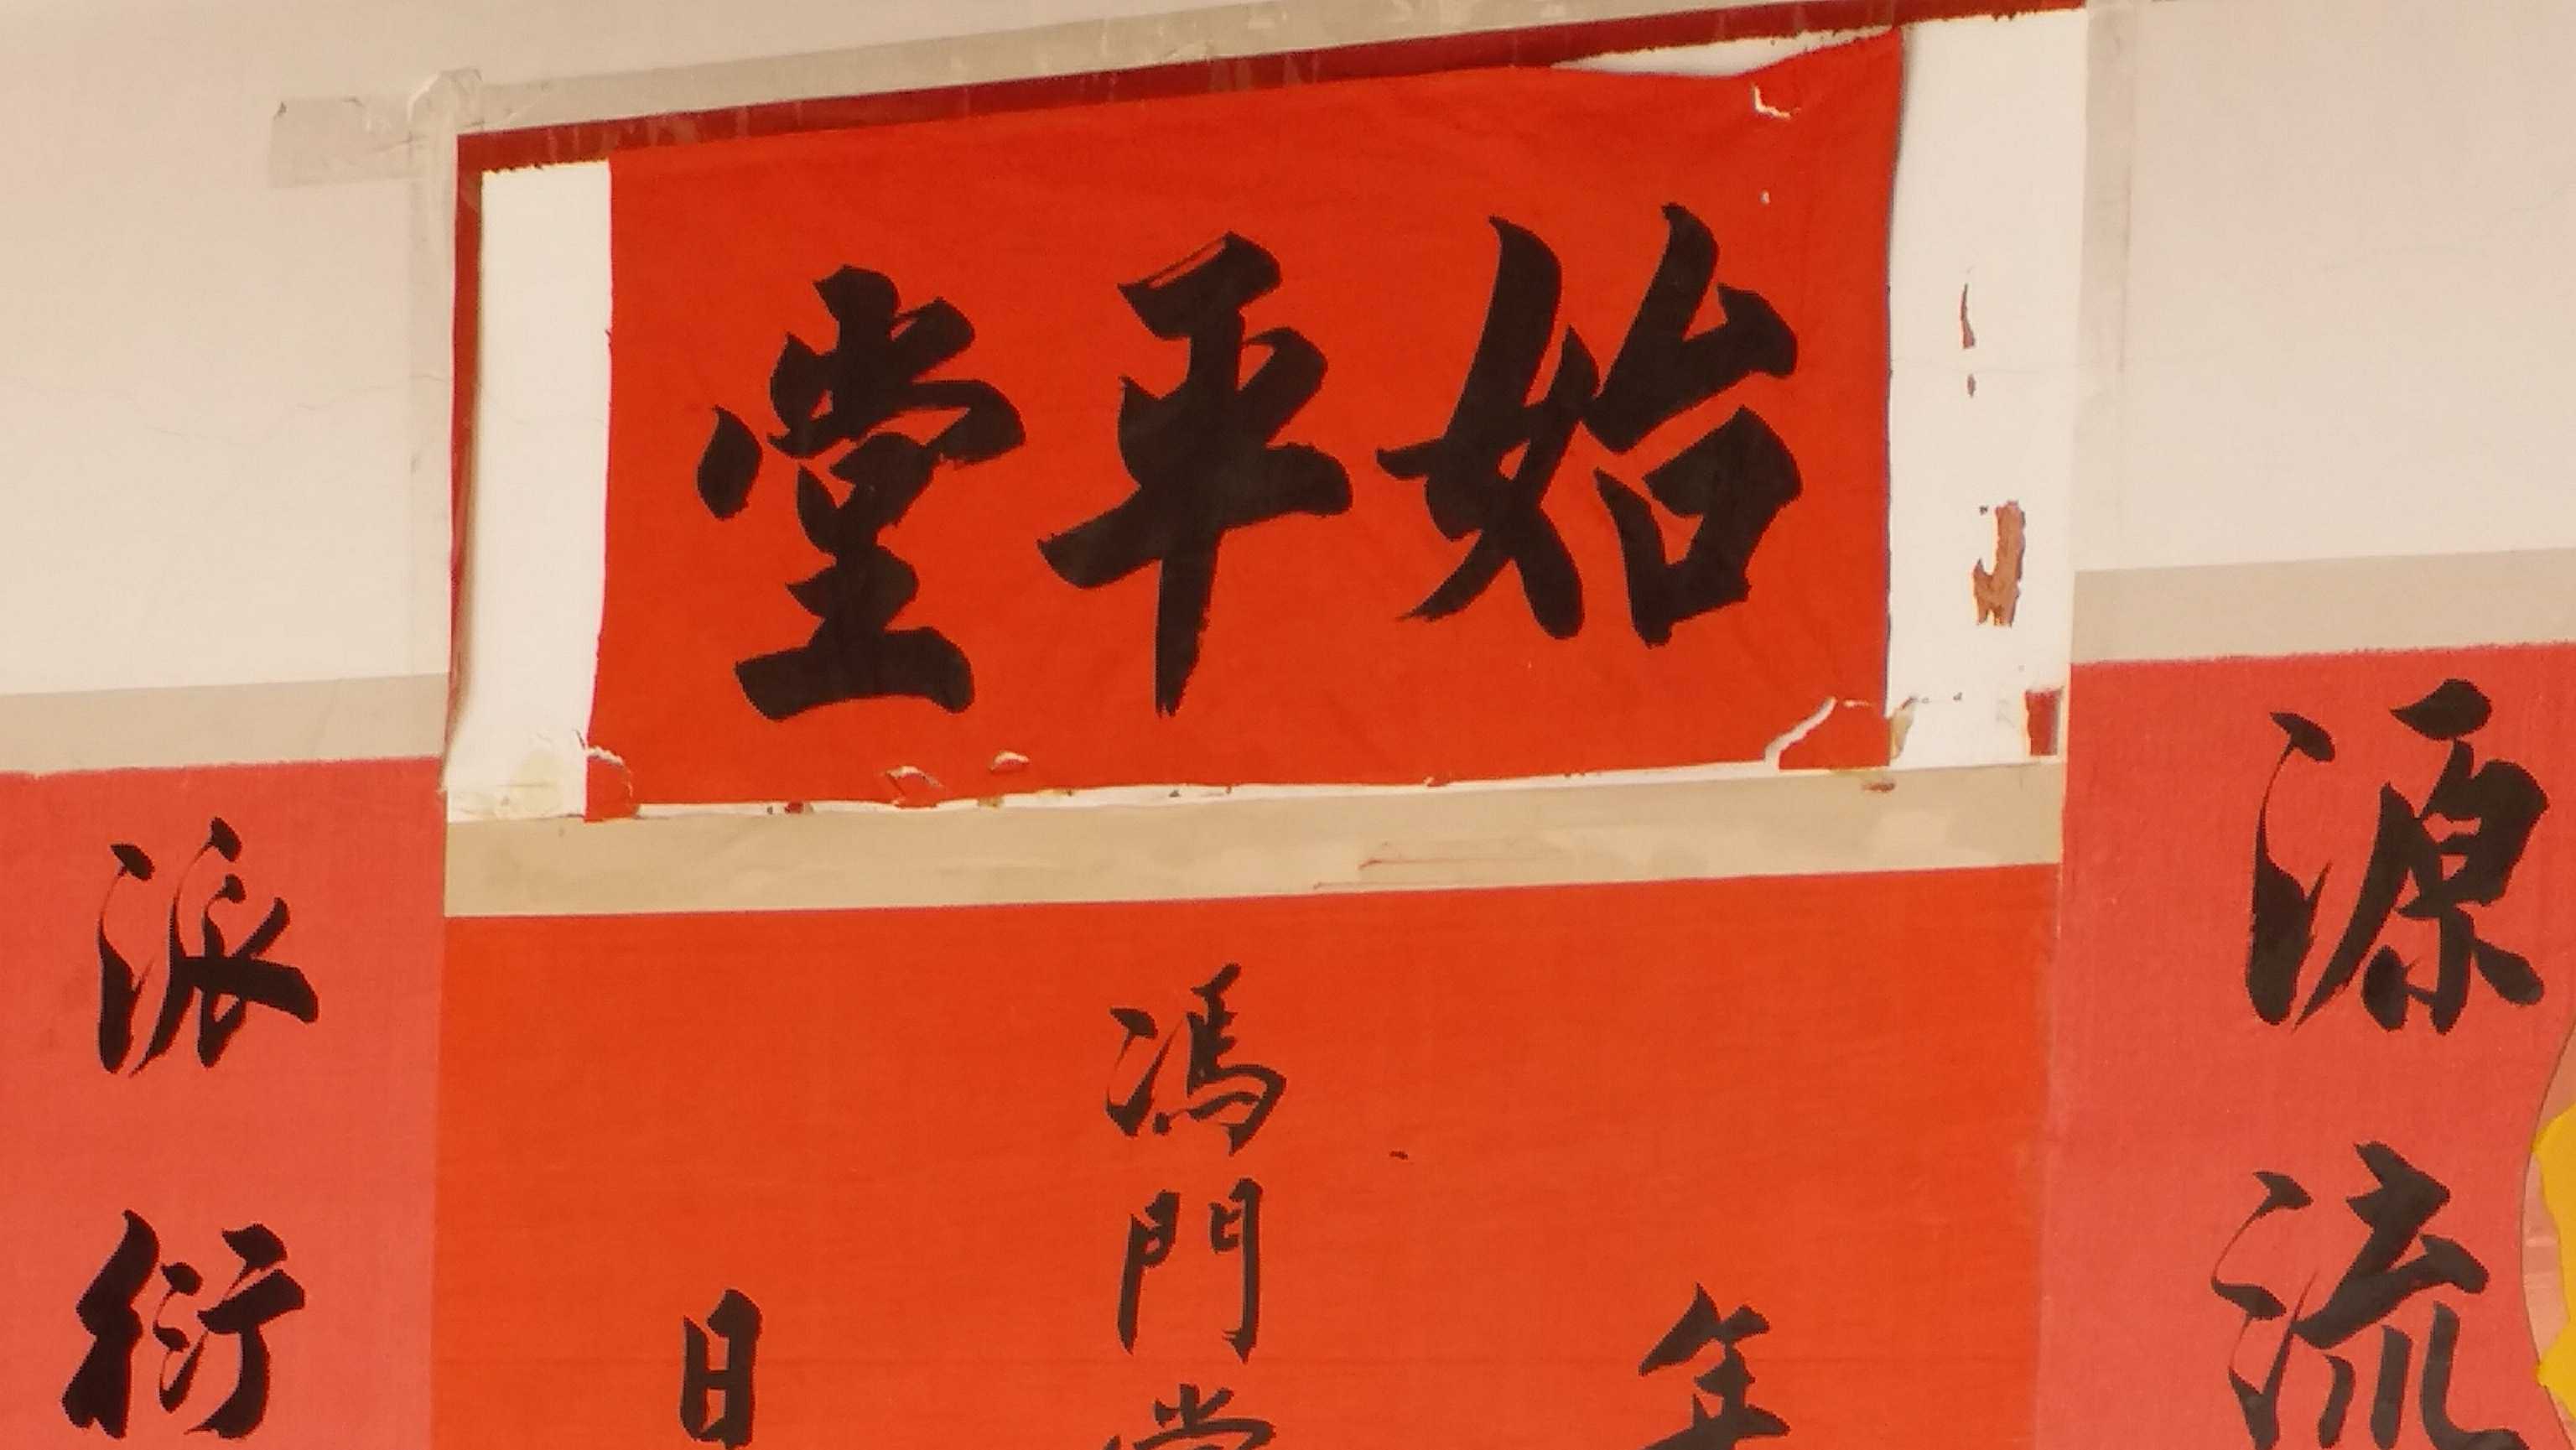 始平堂
源流
年
馮門堂
日
派衍